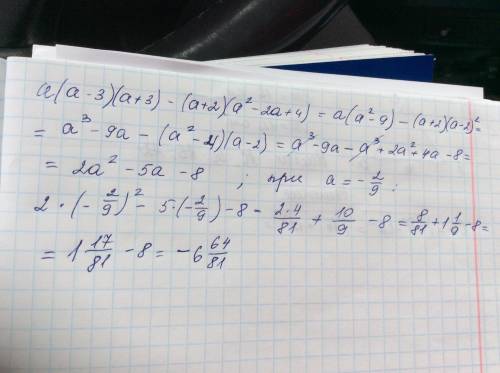 a(a-3)(a+3) - (a+2)(a²-2a+4) = a(a²-9) - (a+2)(a-2)²=
= a³-9a - (a²-4)(a-2) = a³-9a-a³+2a²+4a-8=
= 2a²-5a-8 ; при a = -2/9 :
2·(-2/9)² - 5·(-2/9) -8 - 2·4/81 + 10/9 -8 = 8/81 + 1 1/9 -8=
= 1 17/81 -8 = -6 64/81